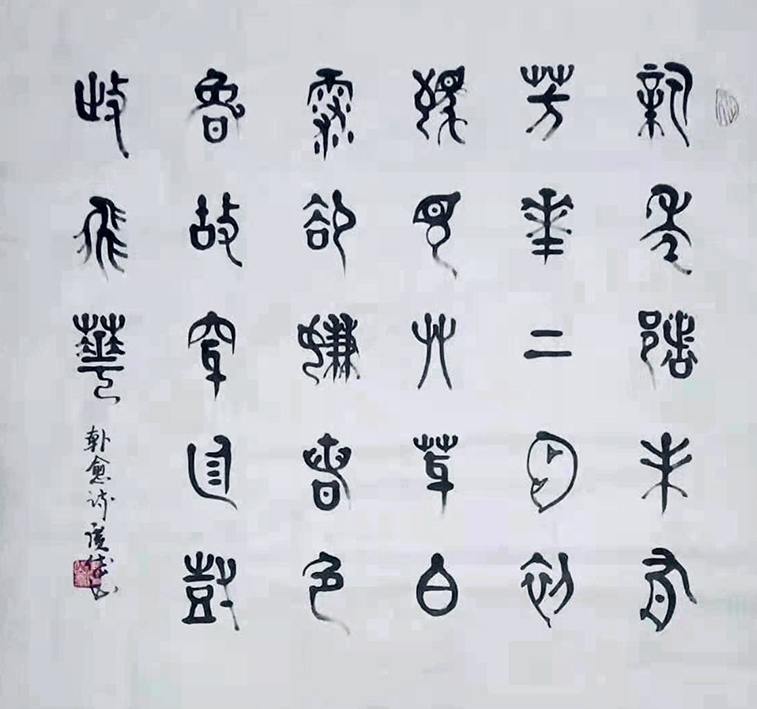 新年都未有
芳華二月初
驚見草芽白
雪卻嫌春色
晚故穿庭樹
作飛華
韓愈詩